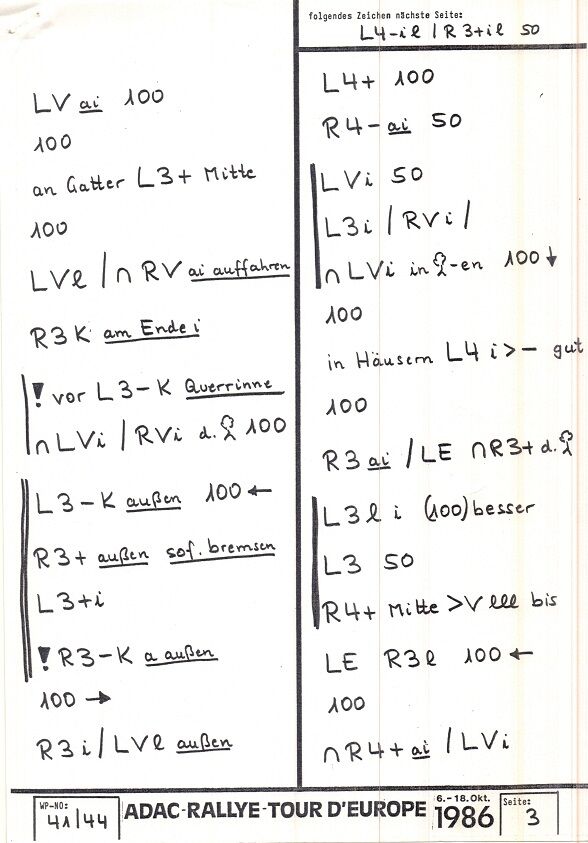 folgendes Zeichen nächste Seite:
L4-il / R3+il 50
LV ai 100
100
an Gatter L3+ Mitte
100
LVl / ∩ RV ai auffahren
R3K am Ende i
! vor L3-K Querrinne
∩ LVi / RVi d. 100
L3-K außen 100 ←
R3+ außen sof. bremsen
L3+i
! R3-K a außen
100 →
R3i / LVl außen
L4+ 100
R4-ai 50
LVi 50
L3i / RVi /
∩ LVi in -en 100 ↓
100
in Häusern L4 i > - gut
100
R3 ai / LE ∩ R3+ d.
L3l i (100) besser
L3 50
R4+ Mitte > V lll bis
LE R3l 100 ←
100
∩ R4+ ai / LVi
WP-NO:
41/44
ADAC-RALLYE-TOUR D'EUROPE
6.-18.Okt.
1986
Seite:
3